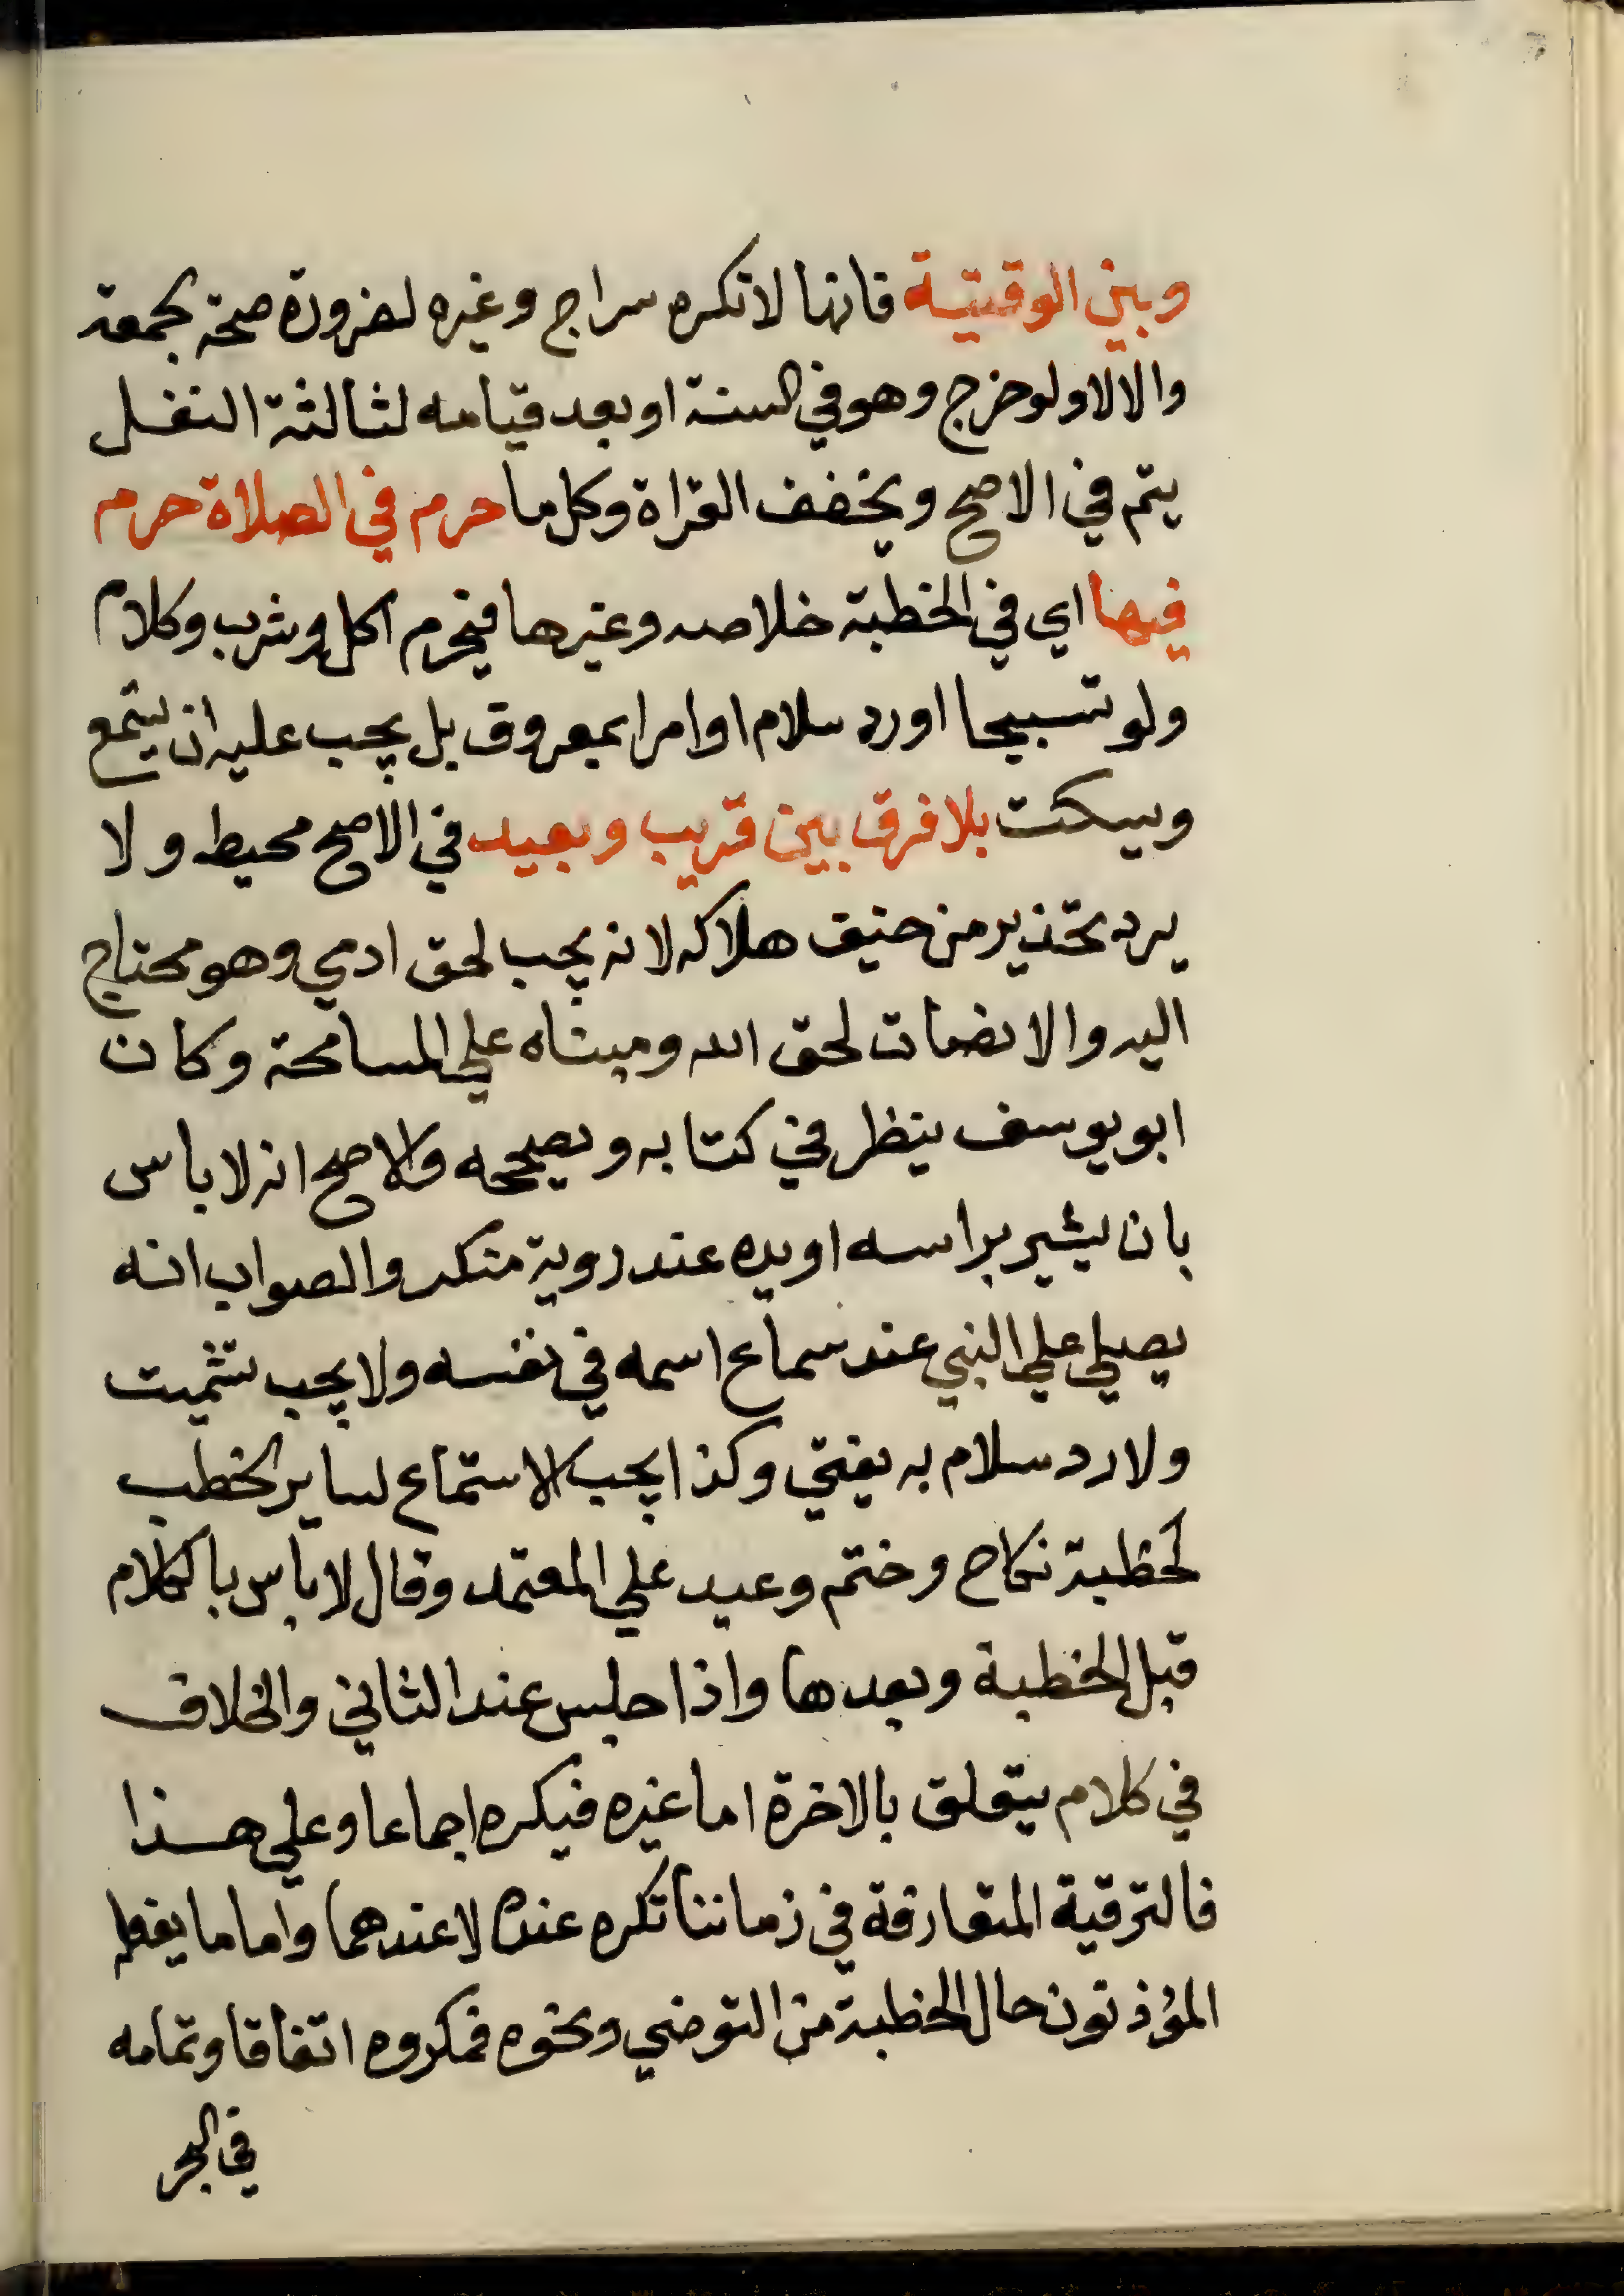 وبين الوقتية فانها لا تكره سراج وغيره لضرورة صحة الجمعة
والا لا ولو خرج وهو في السنة او بعد قيامه لثالثة النفل
يتم في الاصح ويخفف القراة وكل ما حرم في الصلاة حرم
فيها اي في الخطبة خلاصه وغيرها فيحرم اكل وشرب وكلام
ولو تسبيحا او رد سلام او امرا بمعروف بل يجب عليه ان يستمع
ويسكت بلا فرق بين قريب وبعيد في الاصح محيط ولا
يرد تحذير من خيف هلاكه لانه يجب لحق ادمي وهو محتاج
اليه والانصات لحق الله ومبناه علي المسامحة وكان
ابو يوسف ينظر في كتابه ويصححه والاصح انه لا باس
بان يشير براسه او يده عند روية منكر والصواب انه
يصلي علي النبي عند سماع اسمه في نفسه ولا يجب تشميت
ولا رد سلام به يفتي وكذا يجب الاستماع لساير الخطب
كخطبة نكاح وختم وعيد علي المعتمد وقال لا باس بالكلام
قبل الخطبة وبعدها واذا جلس عند الثاني والخلاف
في كلام يتعلق بالاخرة اما غيره فيكره اجماعا وعلي هذا
فالترقية المتعارفة في زماننا تكره عنده لا عندهما واما ما يفعله
المؤذنون حال الخطبة من التوضي ونحوه فمكروه اتفاقا وتمامه
في البحر